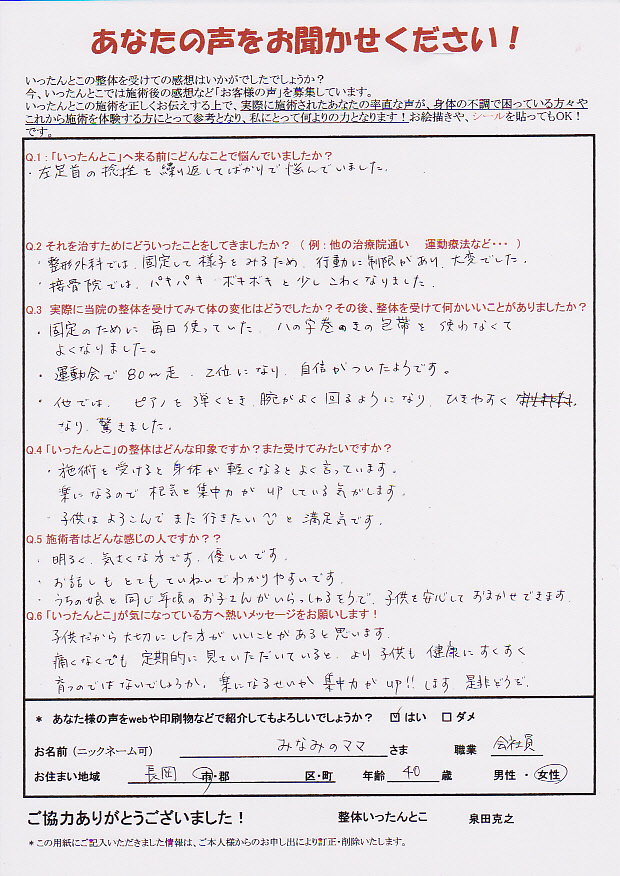 あなたの声をお聞かせください！
いったんとこの整体を受けての感想はいかがでしたでしょうか？
今、いったんとこでは施術後の感想など「お客様の声」を募集しています。
いったんとこの施術を正しくお伝えする上で、実際に施術されたあなたの率直な声が、身体の不調で困っている方々や
これから施術を体験する方にとって参考となり、私にとって何よりの力となります！お絵描きや、シールを貼ってもOK！
です。
Q.1：「いったんとこ」へ来る前にどんなことで悩んでいましたか？
・左足首の捻挫を繰り返してばかりで悩んでいました.
Q.2 それを治すためにどういったことをしてきましたか？（例：他の治療院通い　運動療法など・・・）
・整形外科では、固定して様子をみるため、行動に制限があり、大変でした.
・接骨院では、バキバキ ボキボキと少しこわくなりました.
Q.3 実際に当院の整体を受けてみて体の変化はどうでしたか？その後、整体を受けて何かいいことがありましたか？
・固定のために 毎日使っていた 八の字巻きの包帯を 使わなくて
よくなりました。
・運動会で 80m走、2位になり、自信がついたようです。
・他では、ピアノを弾くとき、腕がよく回るようになり、ひきやすく
なり、驚きました.
Q.4 「いったんとこ」の整体はどんな印象ですか？また受けてみたいですか？
・施術を受けると身体が軽くなるとよく言っています。
楽になるので根気と集中力がupしている気がします.
・子供はよろこんでまた行きたいと満足気です.
Q.5 施術者はどんな感じの人ですか？？
・明るく、気さくな方です、優しいです.
・お話しもとてもていねいでわかりやすいです.
・うちの娘と同じ年頃のお子さんがいらっしゃるそうで、子供を安心しておまかせできます.
Q.6 「いったんとこ」が気になっている方へ熱いメッセージをお願いします！
子供だから大切にした方がいいことがあると思います.
痛くなくても 定期的に見ていただいていると、より子供も健康にすくすく
育つのではないでしょうか. 楽になるせいか集中力がup!!します、是非どうぞ.
＊ あなた様の声をwebや印刷物などで紹介してもよろしいでしょうか？ ☑はい □ダメ
お名前（ニックネーム可） みなみのママ さま 職業 会社員
お住まい地域 長岡 市・郡 区・町 年齢 40 歳 男性・女性
ご協力ありがとうございました！ 整体いったんとこ 泉田克之
＊この用紙にご記入いただきました情報は、ご本人様からのお申し出により訂正・削除いたします。